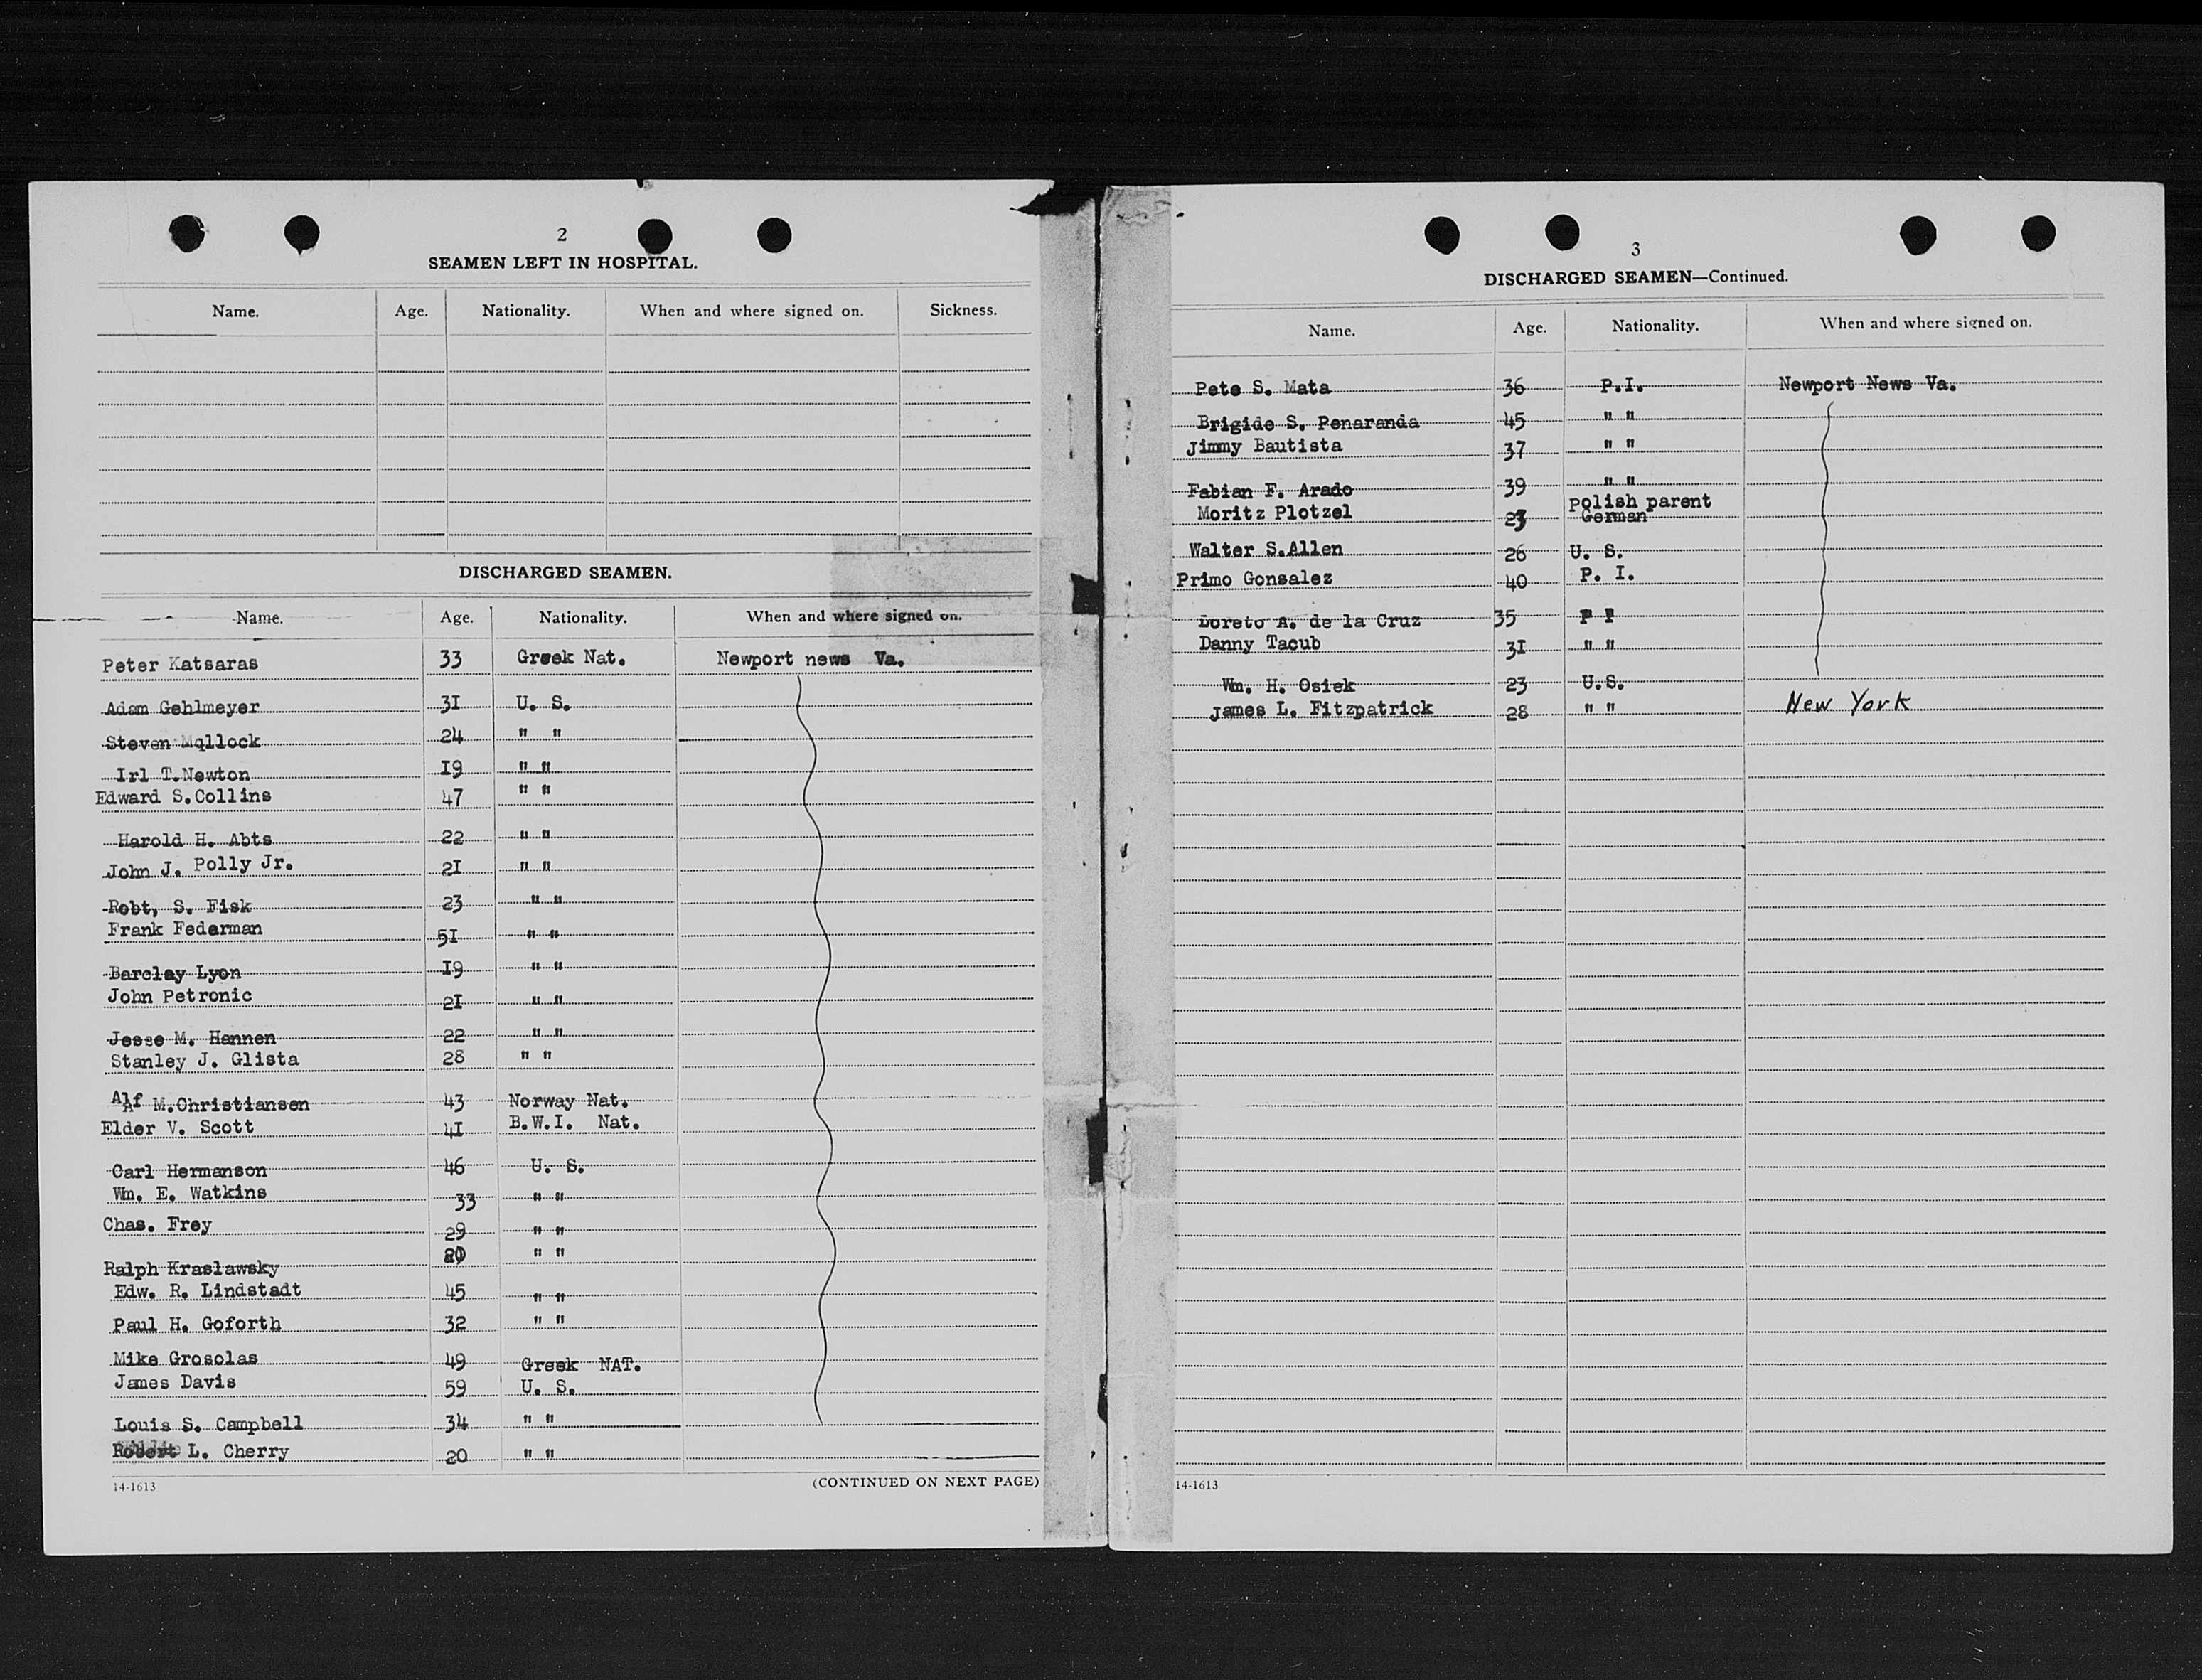 2
SEAMEN LEFT IN HOSPITAL.
Name. Age. Nationality. When and where signed on. Sickness.
DISCHARGED SEAMEN.
Name. Age. Nationality. When and where signed on.
Peter Katsaras 33 Greek Nat. Newport news Va.
Adam Gehlmeyer 31 U. S.
Steven Mqllock 24 " "
Irl T.Newton 19 " "
Edward S.Collins 47 " "
Harold H. Abts 22 " "
John J. Polly Jr. 21 " "
Robt, S. Fisk 23 " "
Frank Federman 51 " "
Barclay Lyon 19 " "
John Petronic 21 " "
Jesse M. Hannen 22 " "
Stanley J. Glista 28 " "
Alf M.Christiansen 43 Norway Nat.
Elder V. Scott 41 B.W.I. Nat.
Carl Hermanson 46 U. S.
Wm. E. Watkins 33 " "
Chas. Frey 29 " "
Ralph Kraslawsky " "
Edw. R. Lindstadt 45 " "
Paul H. Goforth 32 " "
Mike Grosolas 49 Greek NAT.
James Davis 59 U. S.
Louis S. Campbell 34 " "
L. Cherry 20 " "
14-1613
(CONTINUED ON NEXT PAGE)
3
DISCHARGED SEAMEN—Continued.
Name. Age. Nationality. When and where signed on.
Pete S. Mata 36 P.I. Newport News Va.
Brigido S. Penaranda 45 " "
Jimmy Bautista 37 " "
Fabian F. Arado 39 " "
Moritz Plotzel 23 Polish parent
German
Walter S.Allen 26 U. S.
Primo Gonsalez 40 P. I.
Loreto A. de la Cruz 35 P I
Danny Tacub 31 " "
Wm. H. Osiek 23 U.S.
James L. Fitzpatrick 28 " " New York
14-1613